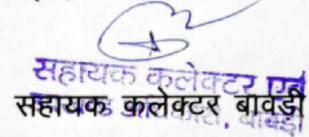 सहायक कलेक्टर एवं
सहायक कलेक्टर बावड़ी